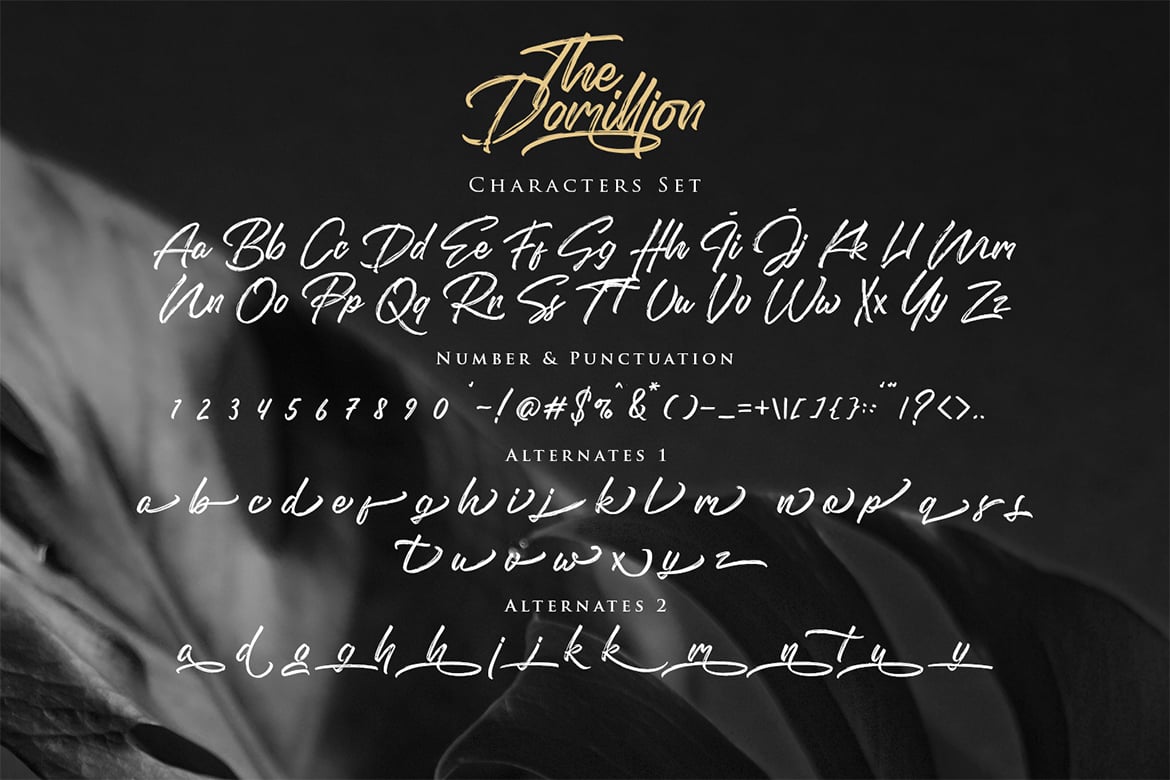 The
Domillion
Characters Set
Aa Bb Cc Dd Ee Ff Gg Hh Ii Jj Kk Ll Mm
Nn Oo Pp Qq Rr Ss Tt Uu Vv Ww Xx Yy Zz
Number & Punctuation
1 2 3 4 5 6 7 8 9 0 `~!@#$%^&*()-_=+\|[]{};:'"/?<>,.
Alternates 1
a b c d e f g h i j k l m n o p q r s
t u v w x y z
Alternates 2
a d g g h h j j k k m n t u y